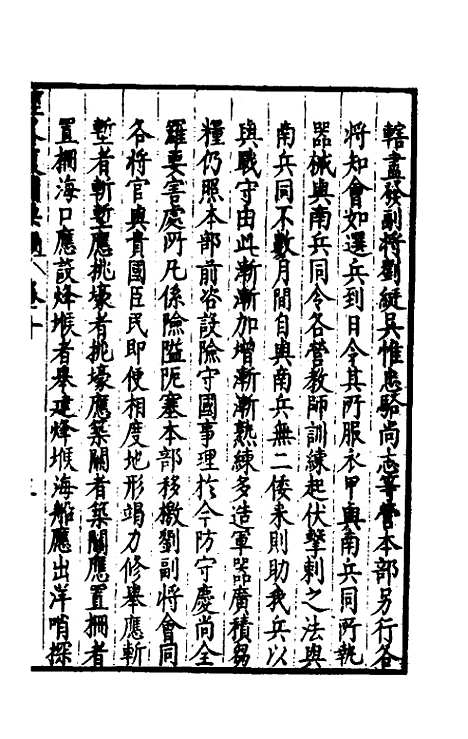 轄盡發副將劉綎吳惟忠駱尚志等營本部另行各
將知會如選兵到日令其所服衣甲與南兵同所執
器械與南兵同令各營教師訓練起伏擊刺之法與
南兵同不數月間自與南兵無二倭來則助我兵以
與戰守由此漸漸加增漸漸熟練多造軍器廣積芻
糧仍照本部前咨設險守國事理於今防守慶尚全
羅要害處所凡係險隘阨塞本部移檄劉副將會同
各將官與貴國臣民即便相度地形竭力修舉應斬
塹者斬塹應挑壕者挑壕應築關者築關應置柵者
置柵海口應設烽堠者舉建烽堠海船應出洋哨探